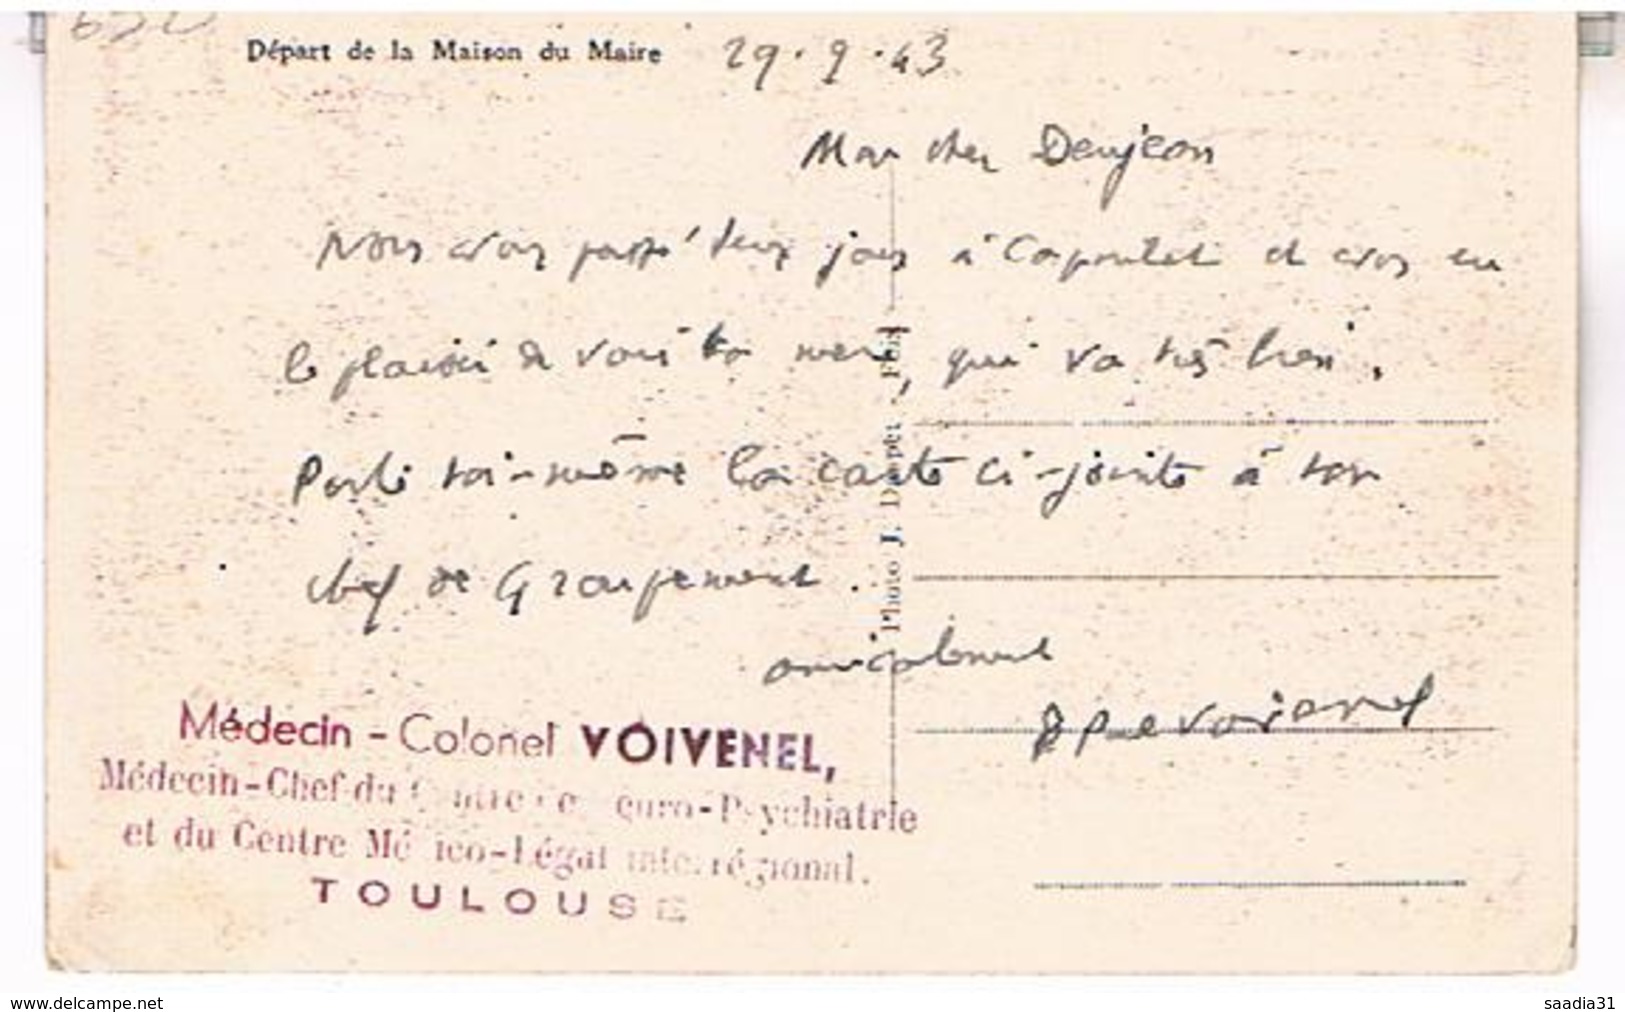 650
Départ de la Maison du Maire
29.9.43
Mon cher Denjean
Nous avons passé deux jours à Capoulet et avons eu
le plaisir de voir ta mère, qui va très bien.
Porte toi-même la carte ci-jointe à ton
chef de Groupement.
amicalement
Paul Voivenel
Photo J. Dempei - Foix
Médecin - Colonel VOIVENEL,
Médecin-Chef du Centre de Neuro-Psychiatrie
et du Centre Médico-Légal interrégional.
TOULOUSE
www.delcampe.net
saadia31